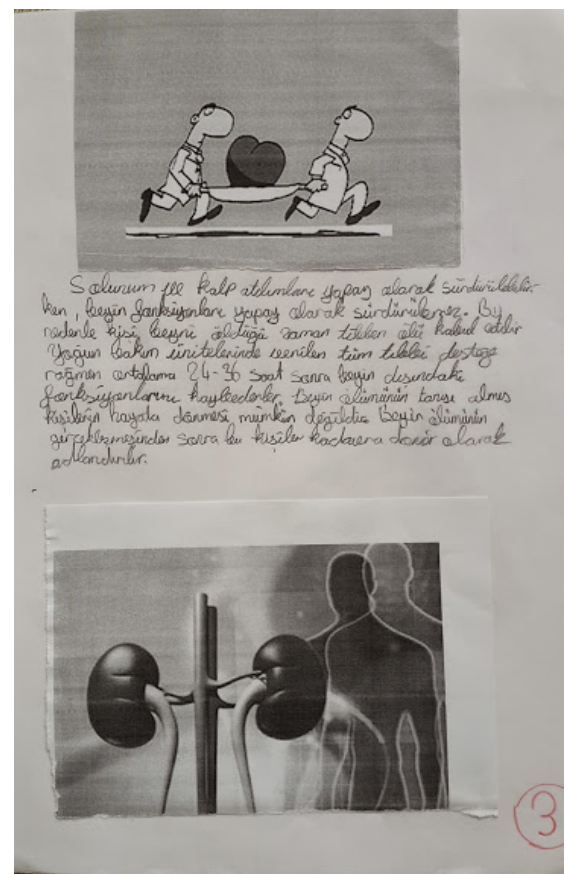 Solunum ile kalp atımları yapay olarak sürdürülebilir-
ken, beyin fonksiyonları yapay olarak sürdürülemez. Bu
nedenle kişi beyni öldüğü zaman tıbben ölü kabul edilir
Yoğun bakım ünitelerinde verilen tüm tıbbi desteğe
rağmen ortalama 24-36 saat sonra beyin dışındaki
fonksiyonlarını kaybederler. Beyin ölümünün tanısı almış
kişilerin hayata dönmesi mümkün değildir. Beyin ölümünün
gerçekleşmesinden sonra bu kişiler kadavra donör olarak
adlandırılır.
3